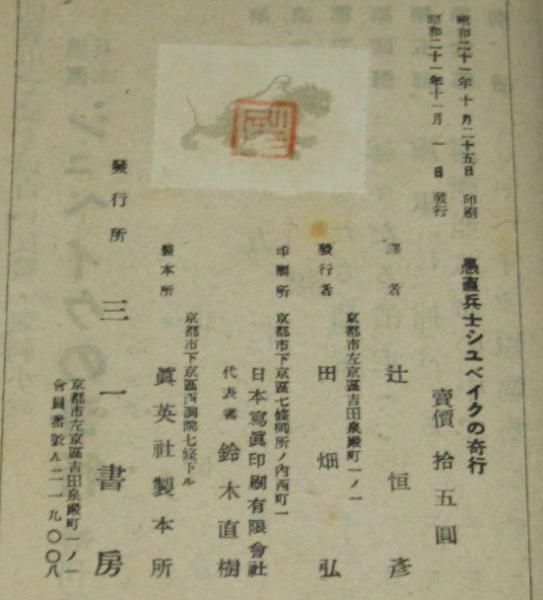 昭和二十一年十月二十五日 印刷
昭和二十一年十一月一日 發行
愚直兵士シユベイクの奇行
賣價拾五圓
譯者 辻恒彥
京都市左京區吉田泉殿町一ノ一
發行者 田畑弘
京都市下京區七條御所ノ內西町一
印刷所 日本寫眞印刷有限會社
代表者 鈴木直樹
京都市下京區西洞院七條下ル
製本所 眞英社製本所
發行所 三一書房
京都市左京區吉田泉殿町一ノ一
會員番號A二一九〇〇八